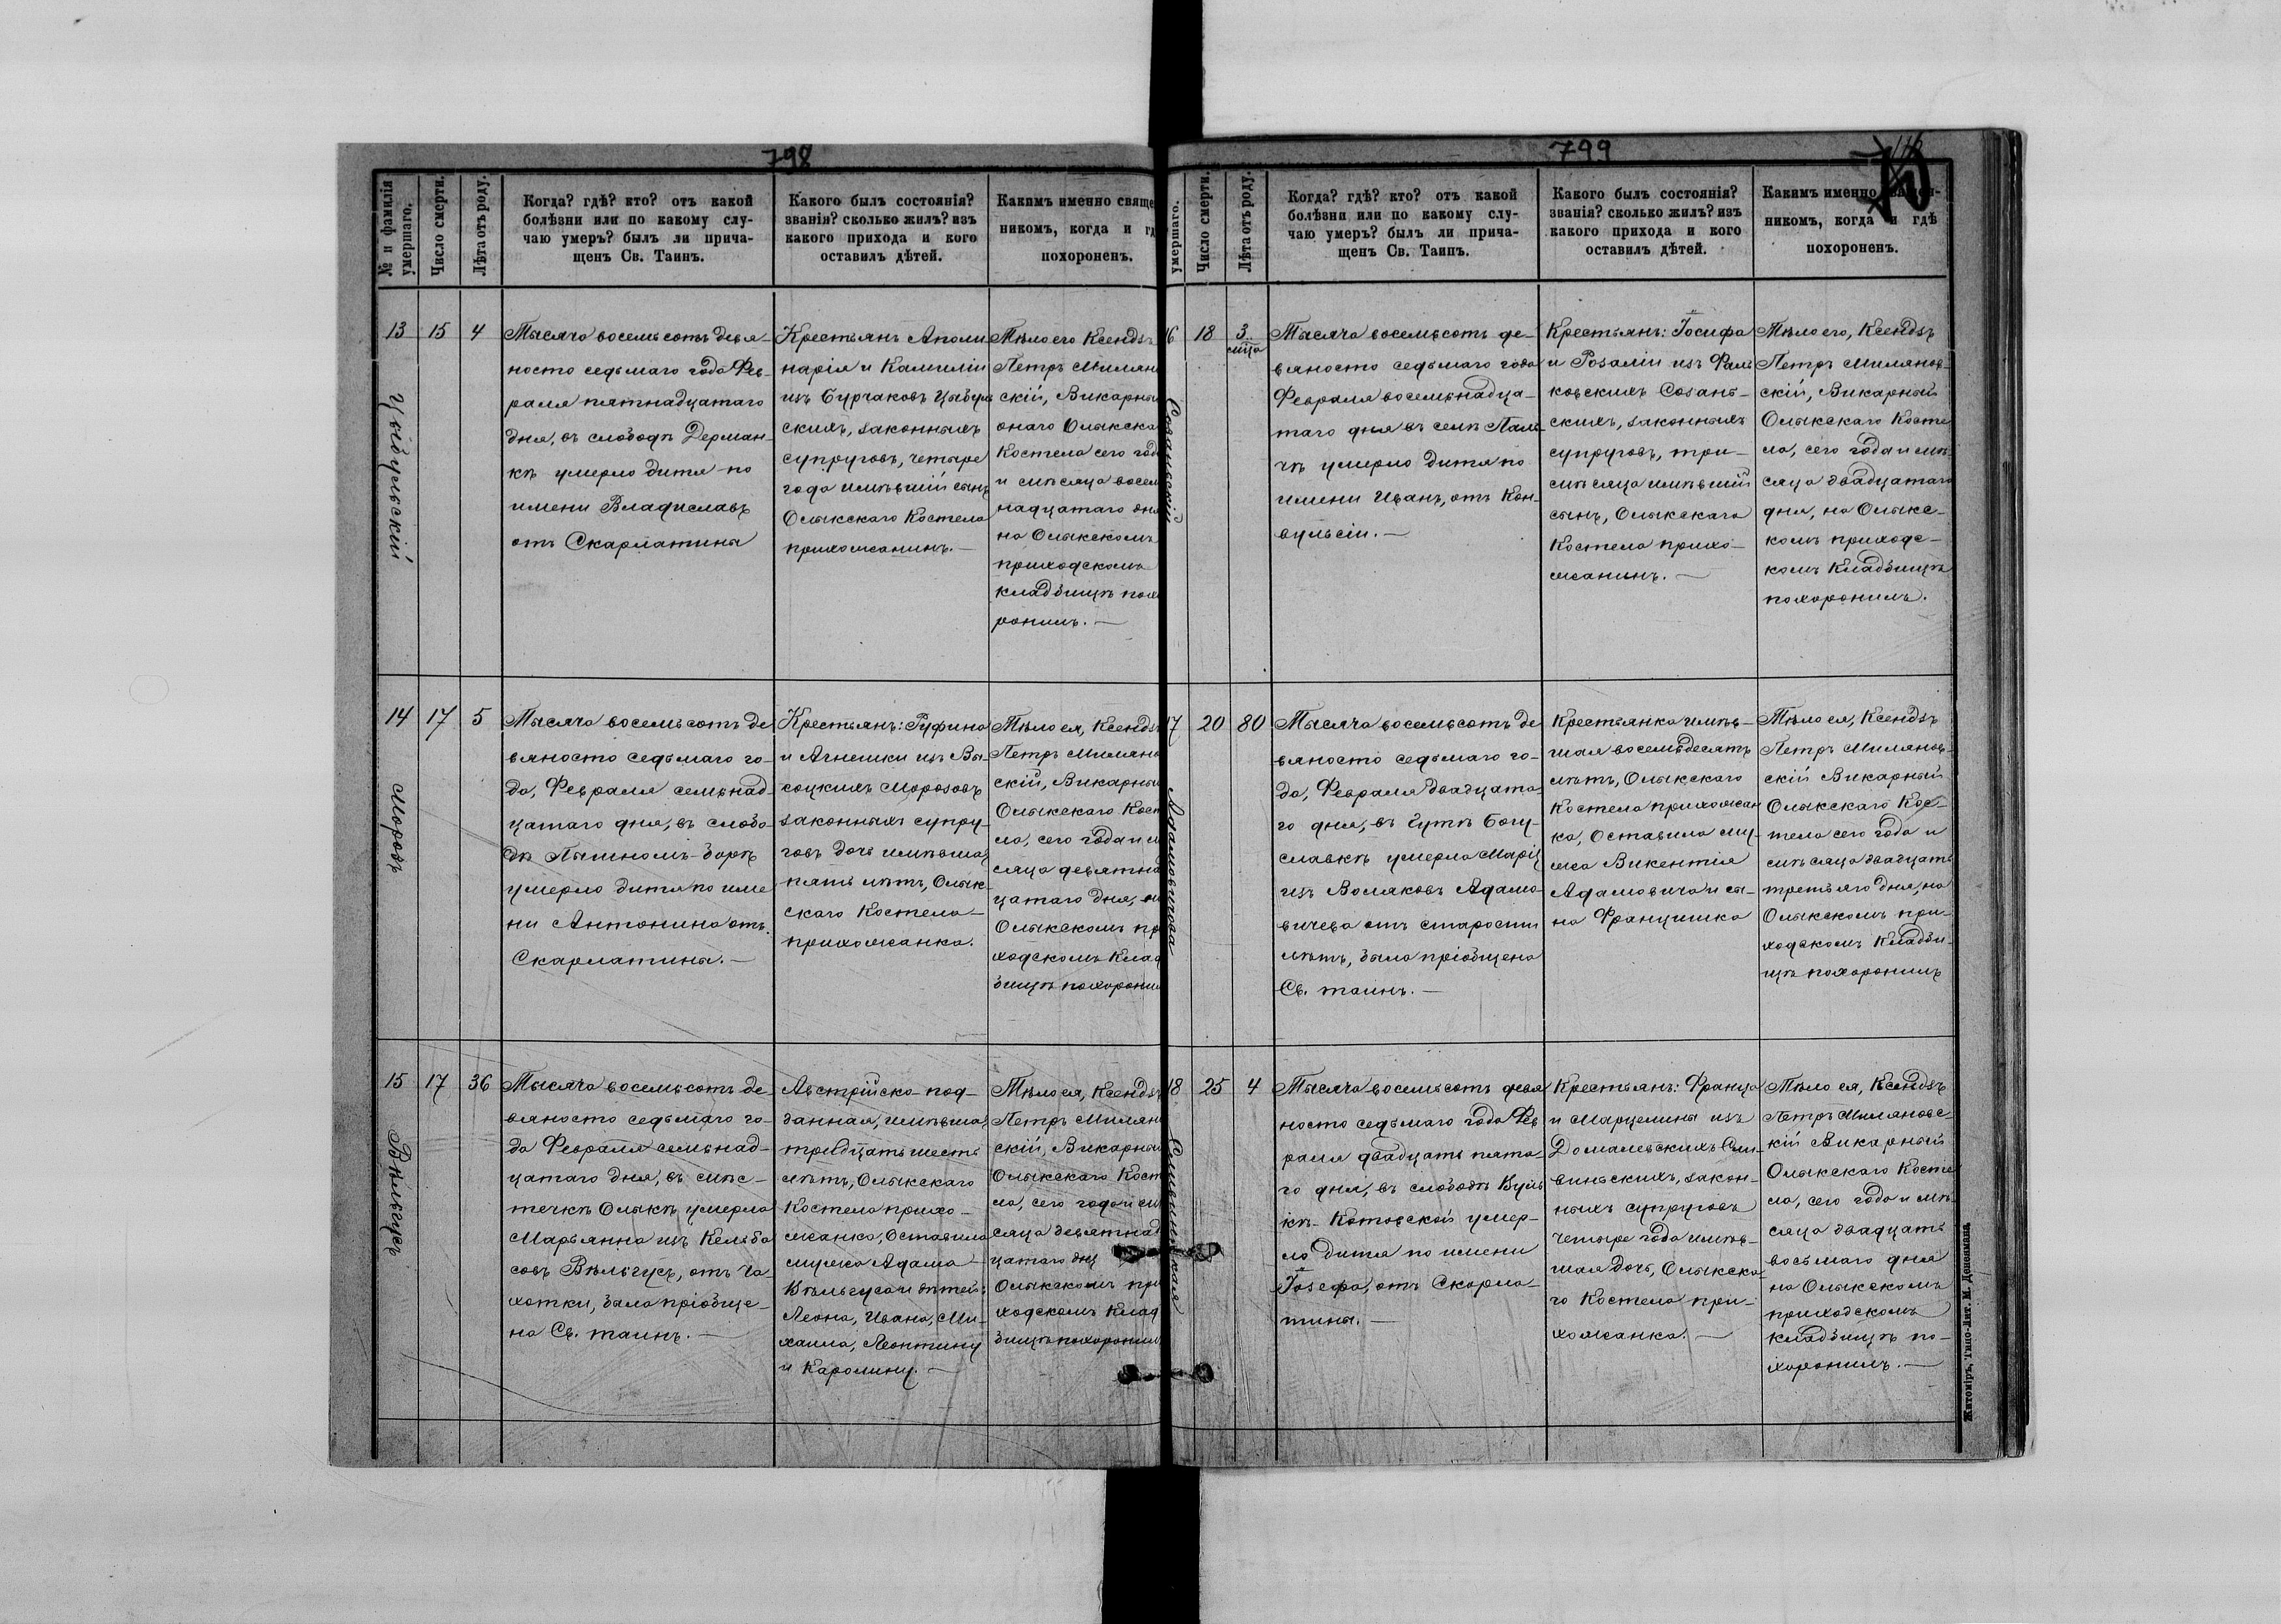 798
№ и фамилія умершаго.
Число смерти.
Лѣта отъ роду.
Когда? гдѣ? кто? отъ какой
болѣзни или по какому слу-
чаю умеръ? былъ ли прича-
щенъ Св. Таинъ.
Какого былъ состоянія?
званія? сколько жилъ? изъ
какого прихода и кого
оставилъ дѣтей.
Какимъ именно свяще
никомъ, когда и гд
похороненъ.
13
Цыбульскій
15
4
Тысяча восемьсотъ девя-
носто седьмаго года Фев-
раля пятнадцатаго
дня, въ слободѣ Дерман-
кѣ умерло дитя по
имени Владиславъ
отъ Скарлатины
Крестьянъ Аполи
нарія и Камиліи
изъ Бурчаковъ Цыбуль
скихъ, законныхъ
супруговъ, четыре
года имѣвшій сынъ
Олыкскаго Костела
прихожанинъ. —
Тѣло его Ксендзъ
Петръ Милянов
скій, Викарный
онаго Олыкска
Костела сего год
и мѣсяца восем
надцатаго дня
на Олыкскомъ
приходскомъ
кладбищѣ похо
ронилъ. —
14
Морозъ
17
5
Тысяча восемьсотъ де
вяносто седьмаго го-
да, Февраля семьнад-
цатаго дня, въ слобо-
дѣ Пышномъ-Борѣ
умерло дитя по име
ни Антонина отъ
Скарлатины. —
Крестьянъ: Руфина
и Агнешки изъ Вы-
соцкихъ Морозовъ
законныхъ супру-
говъ дочь имѣвшая
пять лѣтъ, Олык-
скаго Костела —
прихожанка.
Тѣло ея, Ксендзъ
Петръ Милянов
скій, Викарный
Олыкскаго Кост
ла, сего года и м
сяца девятнад
цатаго дня, на
Олыкскомъ пр
ходскомъ Клад
бищѣ похоронил
15
Вѣльгусъ
17
36
Тысяча восемьсотъ де
вяносто седьмаго го-
да Февраля семьнад-
цатаго дня, въ мѣс-
течкѣ Олыкѣ умерла
Марьянна изъ Кельба
совъ Вѣльгусъ, отъ ча-
хотки, была пріобще-
на Св. таинъ. —
Австрійско-под-
данная, имѣвшая
тридцать шесть
лѣтъ, Олыкскаго
Костела прихо-
жанка, Оставила
мужа Адама
Вѣльгуса и дѣтей:
Леона, Ивана, Ми-
хаила, Леонтину
и Каролину. —
Тѣло ея, Ксендзъ
Петръ Милянов
скій, Викарный
Олыкскаго Кост
ла, сего года и м
сяца девятнад
цатаго дня
Олыкскомъ при
ходскомъ Клад
бищѣ похоронил
799
умершаго.
Число смерти.
Лѣта отъ роду.
Когда? гдѣ? кто? отъ какой
болѣзни или по какому слу-
чаю умеръ? былъ ли прича-
щенъ Св. Таинъ.
Какого былъ состоянія?
званія? сколько жилъ? изъ
какого прихода и кого
оставилъ дѣтей.
Какимъ именно
никомъ, когда и гдѣ
похороненъ.
16
Созаньскій
18
3
мѣца
Тысяча восемьсотъ де-
вяносто седьмаго года
Февраля восемьнадца-
таго дня въ селѣ Паль-
чѣ умерло дитя по
имени Иванъ, отъ Кон-
вульсіи. —
Крестьянъ: Іосифа
и Розаліи изъ Фаль
ковскихъ Созань-
скихъ, законныхъ
супруговъ, три-
мѣсяца имѣвшій
сынъ, Олыкскаго
Костела прихо-
жанинъ. —
Тѣло его, Ксендзъ
Петръ Милянов-
скій, Викарный
Олыкскаго Косте
ла, сего года и мѣ-
сяца двадцатаго
дня, на Олыкс-
комъ приходс-
комъ Кладбищѣ
похоронилъ.
17
Адамовичева
20
80
Тысяча восемьсотъ де
вяносто седьмаго го-
да, Февраля двадцата-
го дня, въ Гутѣ Богу-
славкѣ умерла Марія
изъ Воляковъ Адамо-
вичева отъ старости
лѣтъ, была пріобщена
Св. таинъ. —
Крестьянка имѣв-
шая восемьдесятъ
лѣтъ, Олыкскаго
Костела прихожан
ка, Оставила му-
жа Викентія
Адамовича и сы-
на Францишка
Тѣло ея, Ксендзъ
Петръ Милянов-
скій Викарный
Олыкскаго Кос-
тела сего года и
мѣсяца двадцать
третьяго дня, на
Олыкскомъ при-
ходскомъ Кладби-
щѣ похоронилъ
18
25
4
Тысяча восемьсотъ девя
носто седьмаго года Фев
раля двадцать пята-
го дня, въ слободѣ Куль
кѣ-Котовской умер-
ло дитя по имени
Іозефа, отъ Скарла-
тины. —
Крестьянъ: Франца
и Марцелины изъ
Домалевскихъ
виньскихъ, закон-
ныхъ супруговъ
четыре года имѣв-
шая дочь, Олыкска-
го Костела при-
хожанка. —
Тѣло ея, Ксендзъ
Петръ Миляновс-
кій Викарный
Олыкскаго Косте
ла, сего года и мѣ-
сяца двадцать
восьмаго дня
на Олыкскомъ
приходскомъ
кладбищѣ по-
хоронилъ. —
Житоміръ, Типо-Лит. М. Дененмана